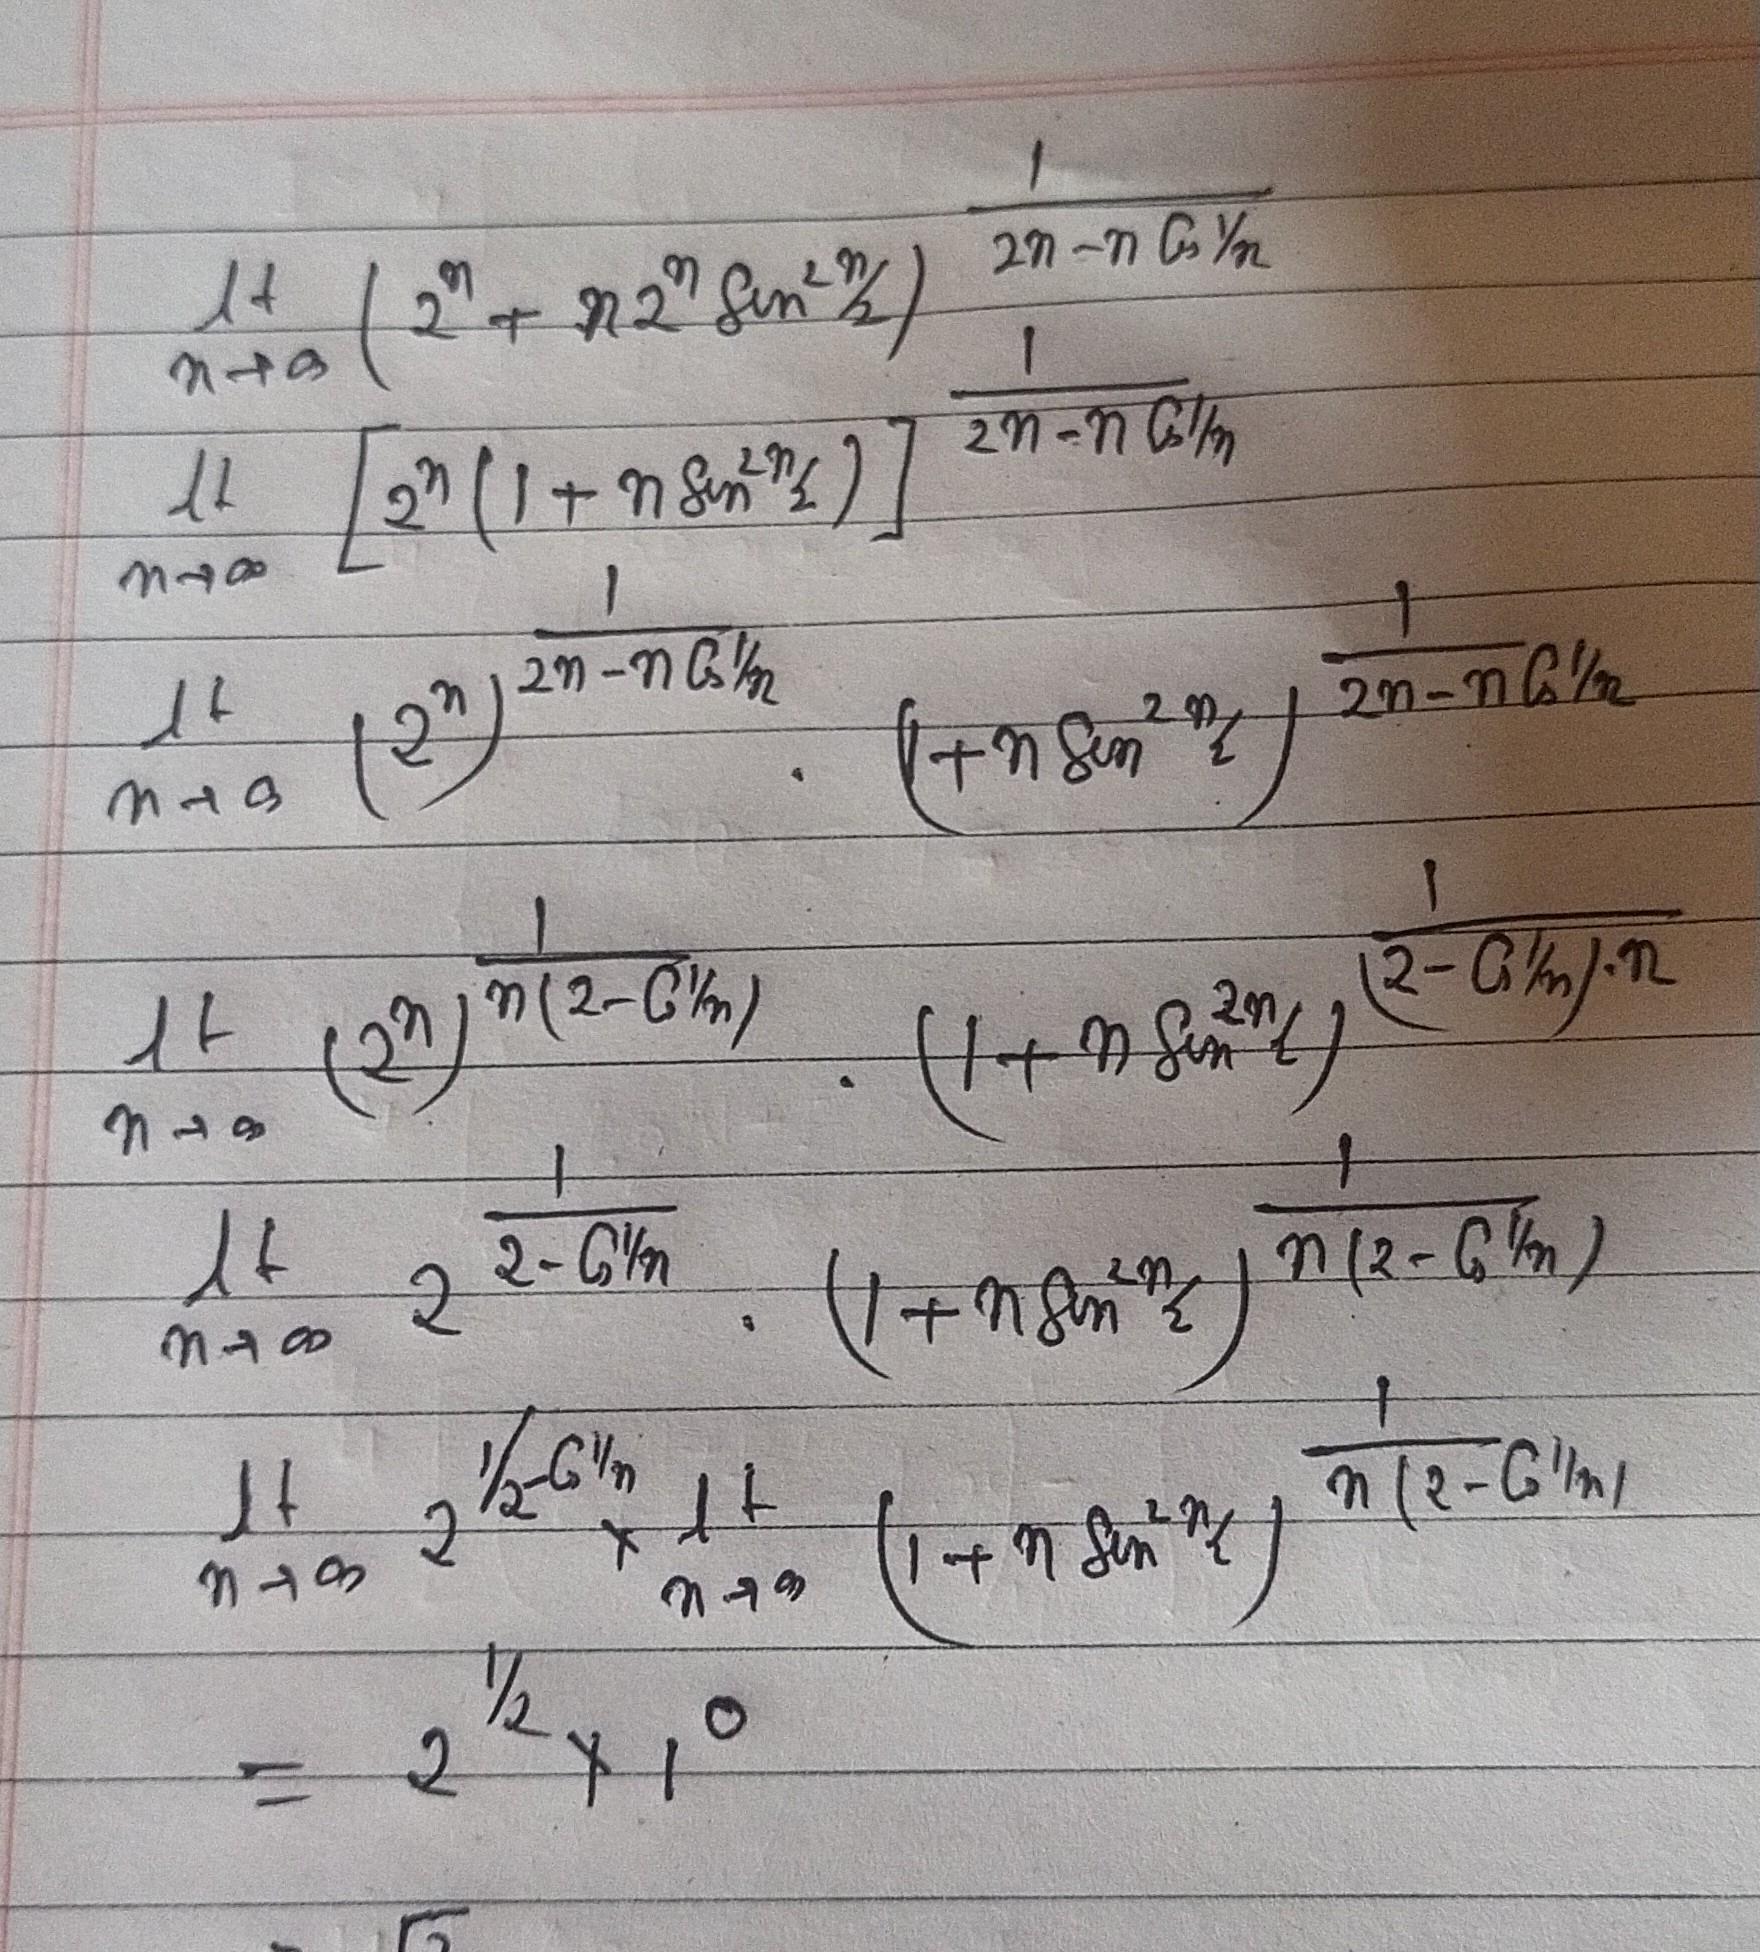 lt n→∞ (2^n + n2^n Sin^2 n/2)^(1/(2n-n Cos 1/n))
lt n→∞ [2^n (1 + n Sin^2 n/2)]^(1/(2n-n Cos 1/n))
lt n→∞ (2^n)^(1/(2n-n Cos 1/n)) . (1+n Sin^2 n/2)^(1/(2n-n Cos 1/n))
lt n→∞ (2^n)^(1/(n(2-Cos 1/n))) . (1+n Sin^2 n/2)^(1/((2-Cos 1/n).n))
lt n→∞ 2^(1/(2-Cos 1/n)) . (1+n Sin^2 n/2)^(1/(n(2-Cos 1/n)))
lt n→∞ 2^(1/2-Cos 1/n) × lt n→∞ (1+n Sin^2 n/2)^(1/(n(2-Cos 1/n)))
= 2^(1/2) × 1^0